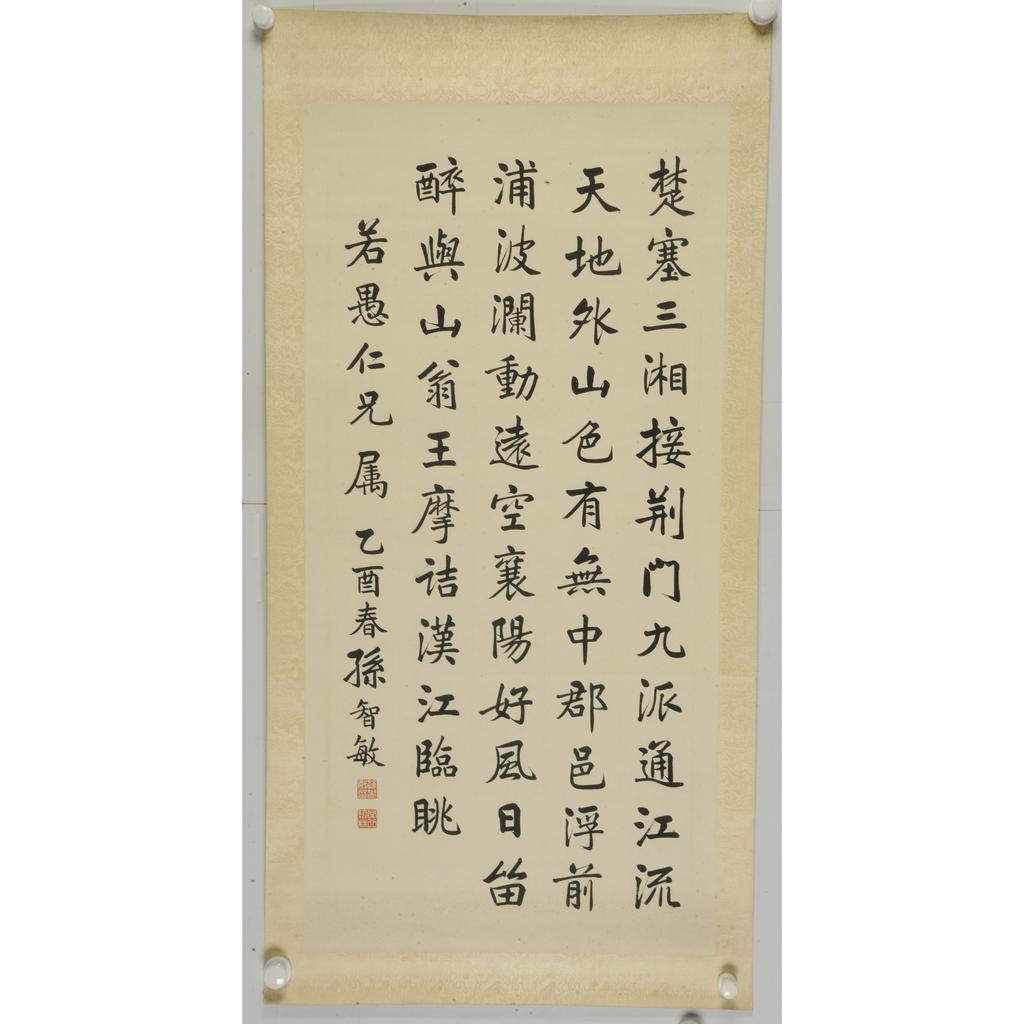 楚塞三湘接荆門九派通江流
天地外山色有無中郡邑浮前
浦波瀾動遠空襄陽好風日留
醉與山翁王摩詰漢江臨眺
若愚仁兄属乙酉春孫智敏